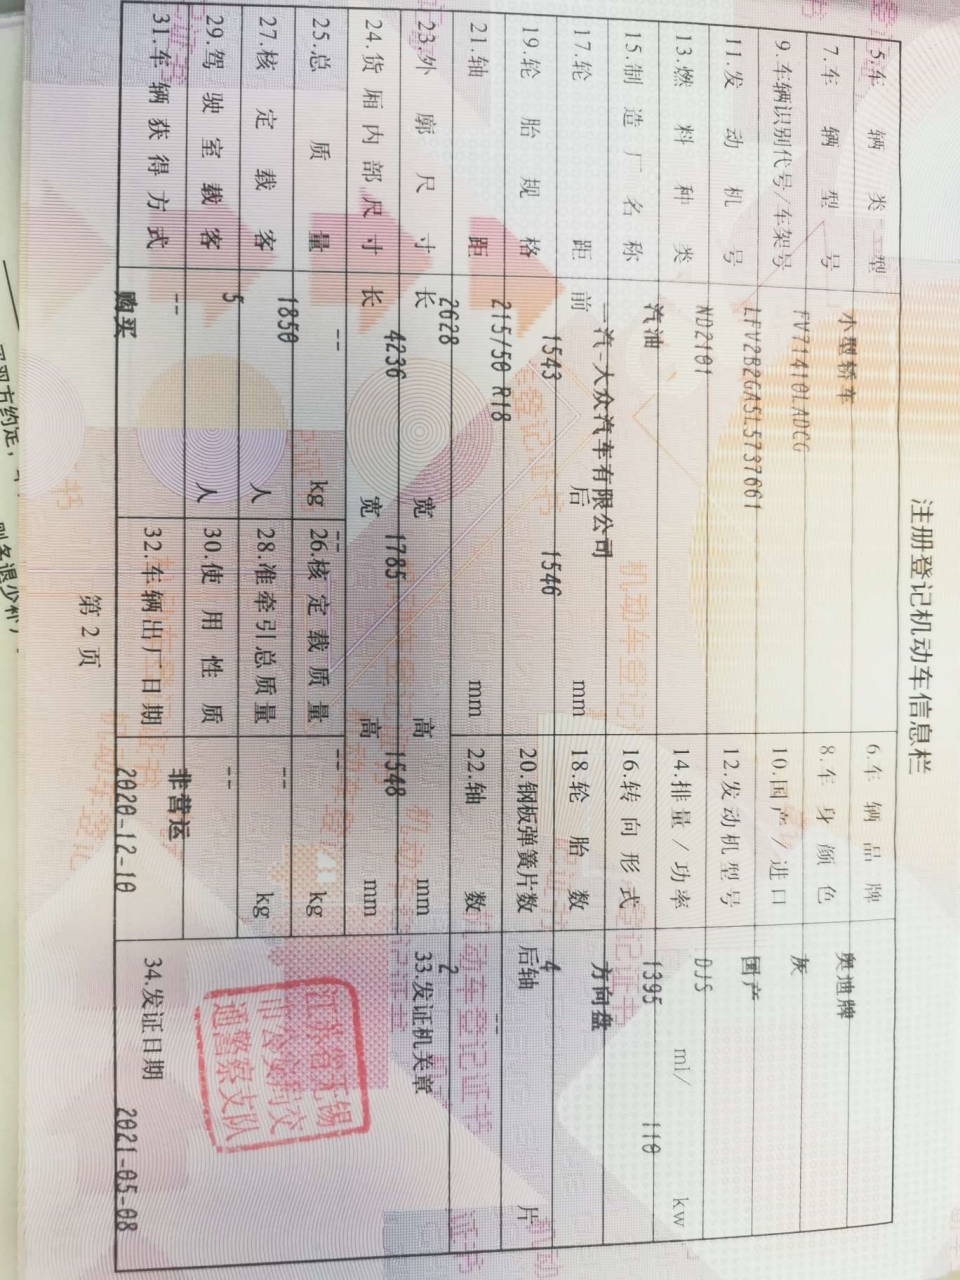 注册登记机动车信息栏
5.车辆类型 小型轿车 6.车辆品牌 奥迪牌
7.车辆型号 FV71410LADCG 8.车身颜色 灰
9.车辆识别代号/车架号 LFV2B2GA5L5737661 10.国产/进口 国产
11.发动机号 ND2101 12.发动机型号 DJS
13.燃料种类 汽油 14.排量/功率 1395 ml/ 110 kw
15.制造厂名称 一汽-大众汽车有限公司 16.转向形式 方向盘
17.轮距 前 1543 后 1546 mm 18.轮胎数 4
19.轮胎规格 215/50 R18 20.钢板弹簧片数 后轴 -- 片
21.轴距 2628 mm 22.轴数 2
23.外廓尺寸 长 4236 宽 1785 高 1548 mm 33.发证机关章
24.货厢内部尺寸 长 -- 宽 -- 高 -- mm
25.总质量 1850 kg 26.核定载质量 -- kg
27.核定载客 5 人 28.准牵引总质量 -- kg
29.驾驶室载客 -- 人 30.使用性质 非营运
31.车辆获得方式 购买 32.车辆出厂日期 2020-12-10 34.发证日期 2021-05-08
江苏省无锡
市公安局交
通警察支队
第2页